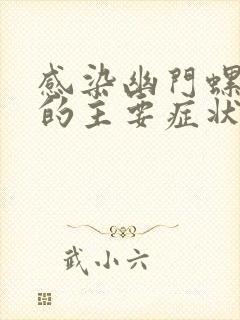 感染幽門螺
的主要症狀
武小六